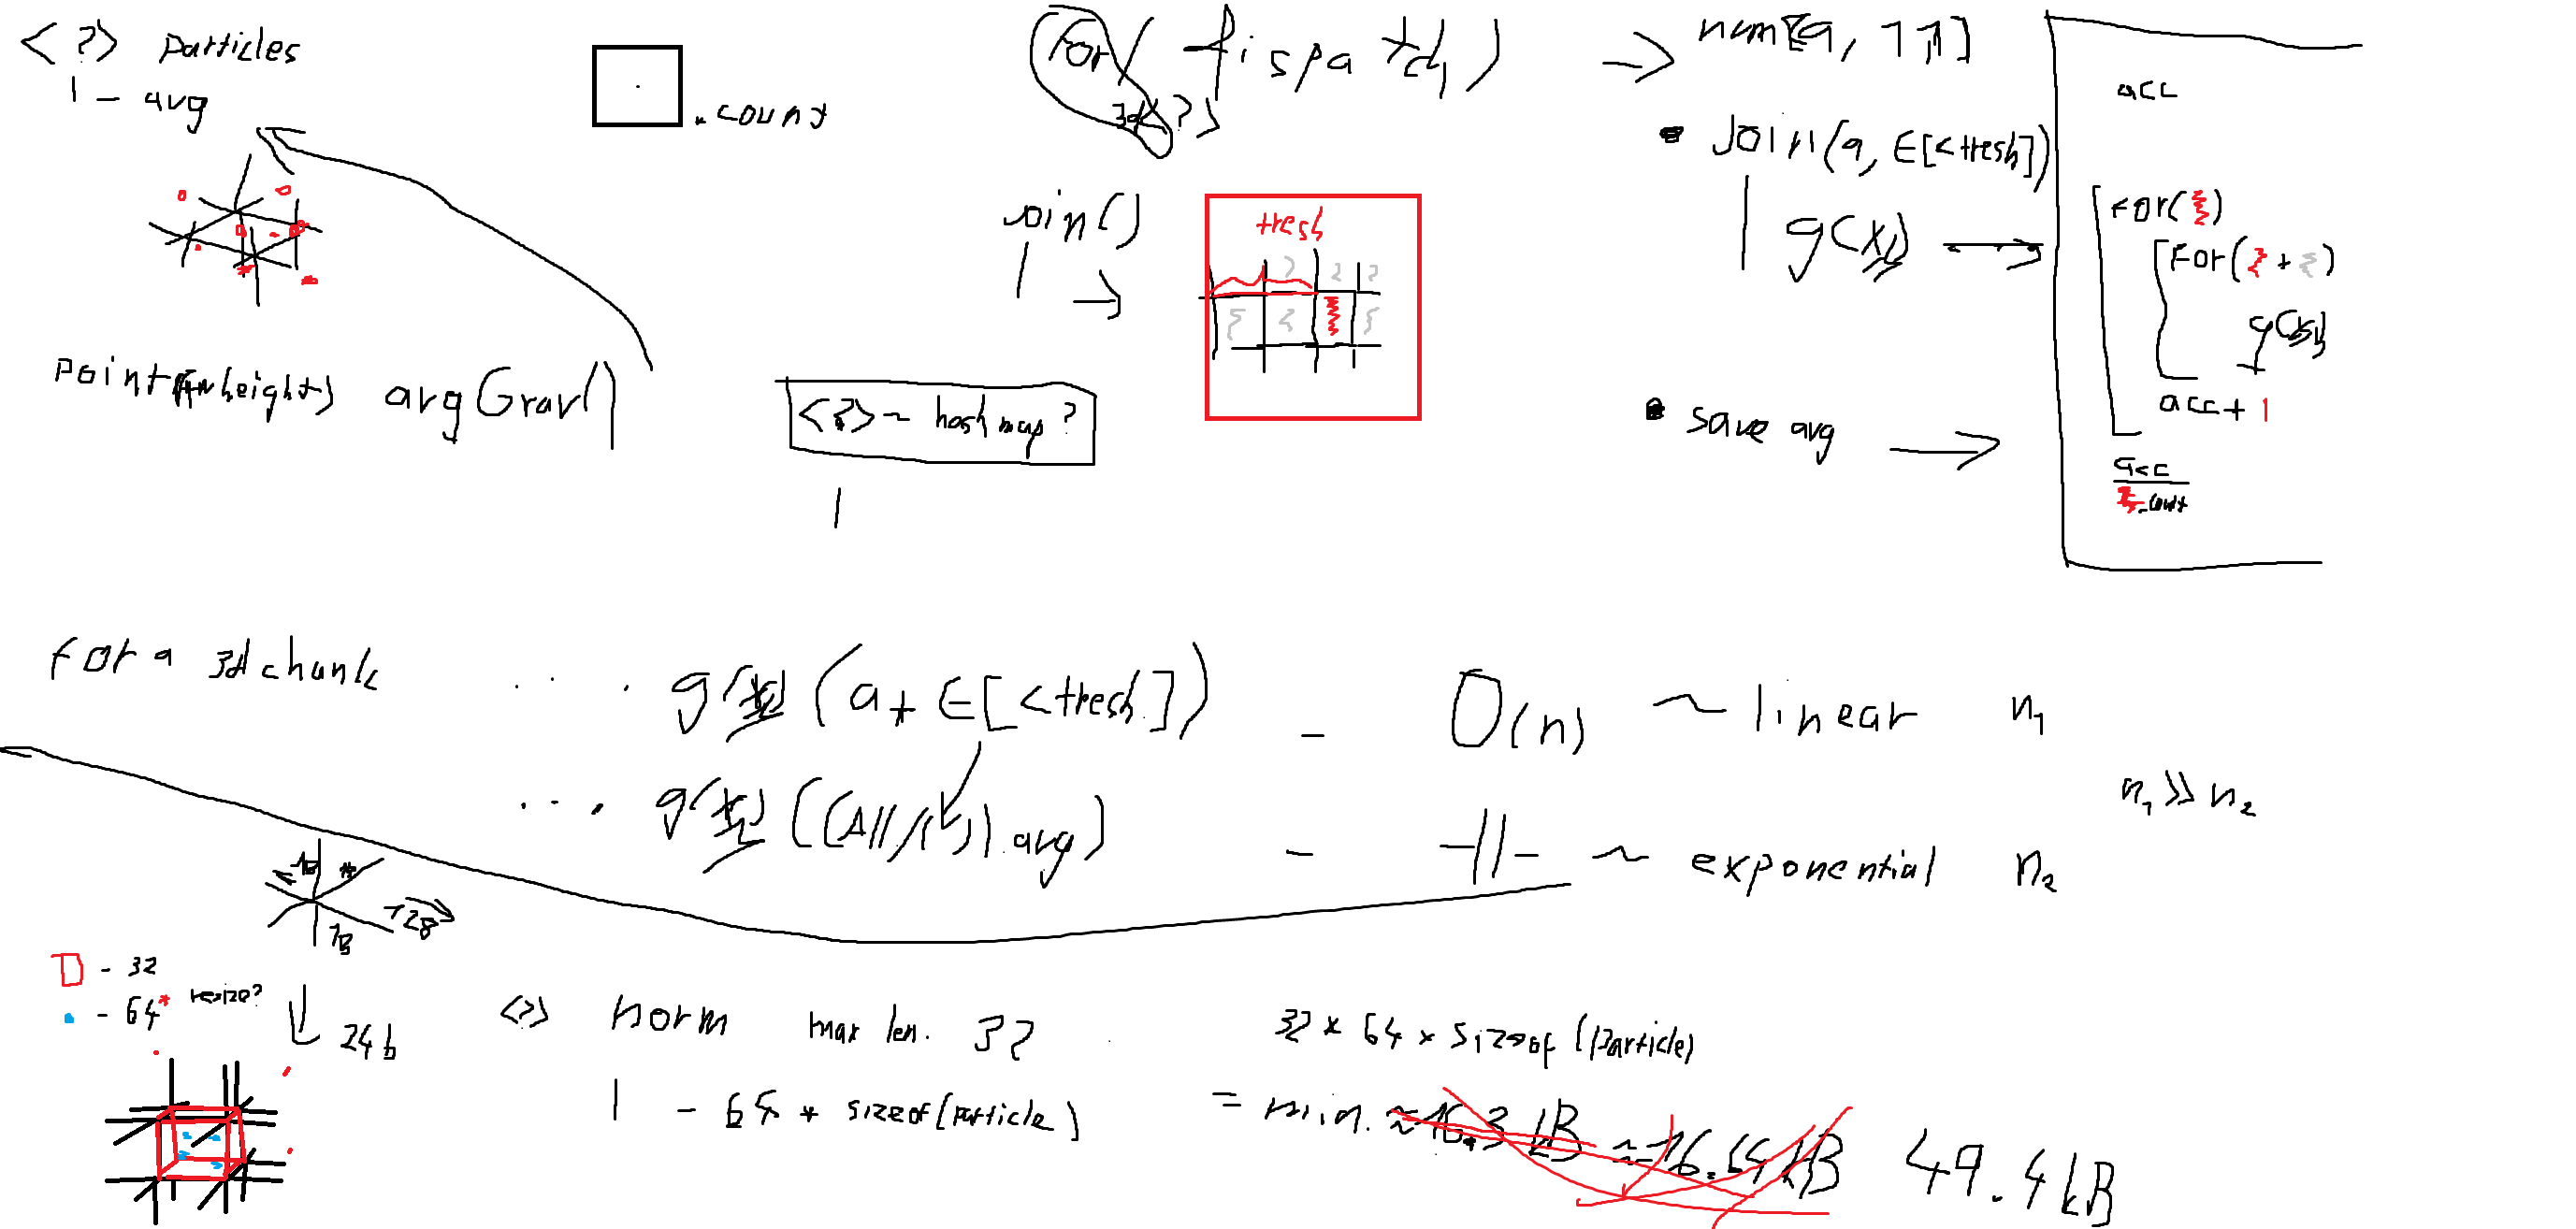 <?> particles
| - avg
.count
For( dispatch )
3d<?>
-> num[9, 7,1]
acc
• Join(a, ∈[<tresh])
| g(x)
Join()
tresh
For( )
For( + )
g(x)
acc + 1
• save avg ->
acc
.count
point(+height) avgGrav()
<?> ~ hashmap?
For a 3d chunk
... g(x)(a + ∈[<tresh]) - O(n) ~ linear n₁
n₁ >> n₂
... g(x)((All/( )).avg) - -||- ~ exponential n₂
128
- 32
- 64* resize?
24b
<?> norm max len. 32
| - 64 * sizeof(particle)
32 * 64 * sizeof(Particle)
= min. ≈16.3 kB ≈16.64 kB 49.4 kB